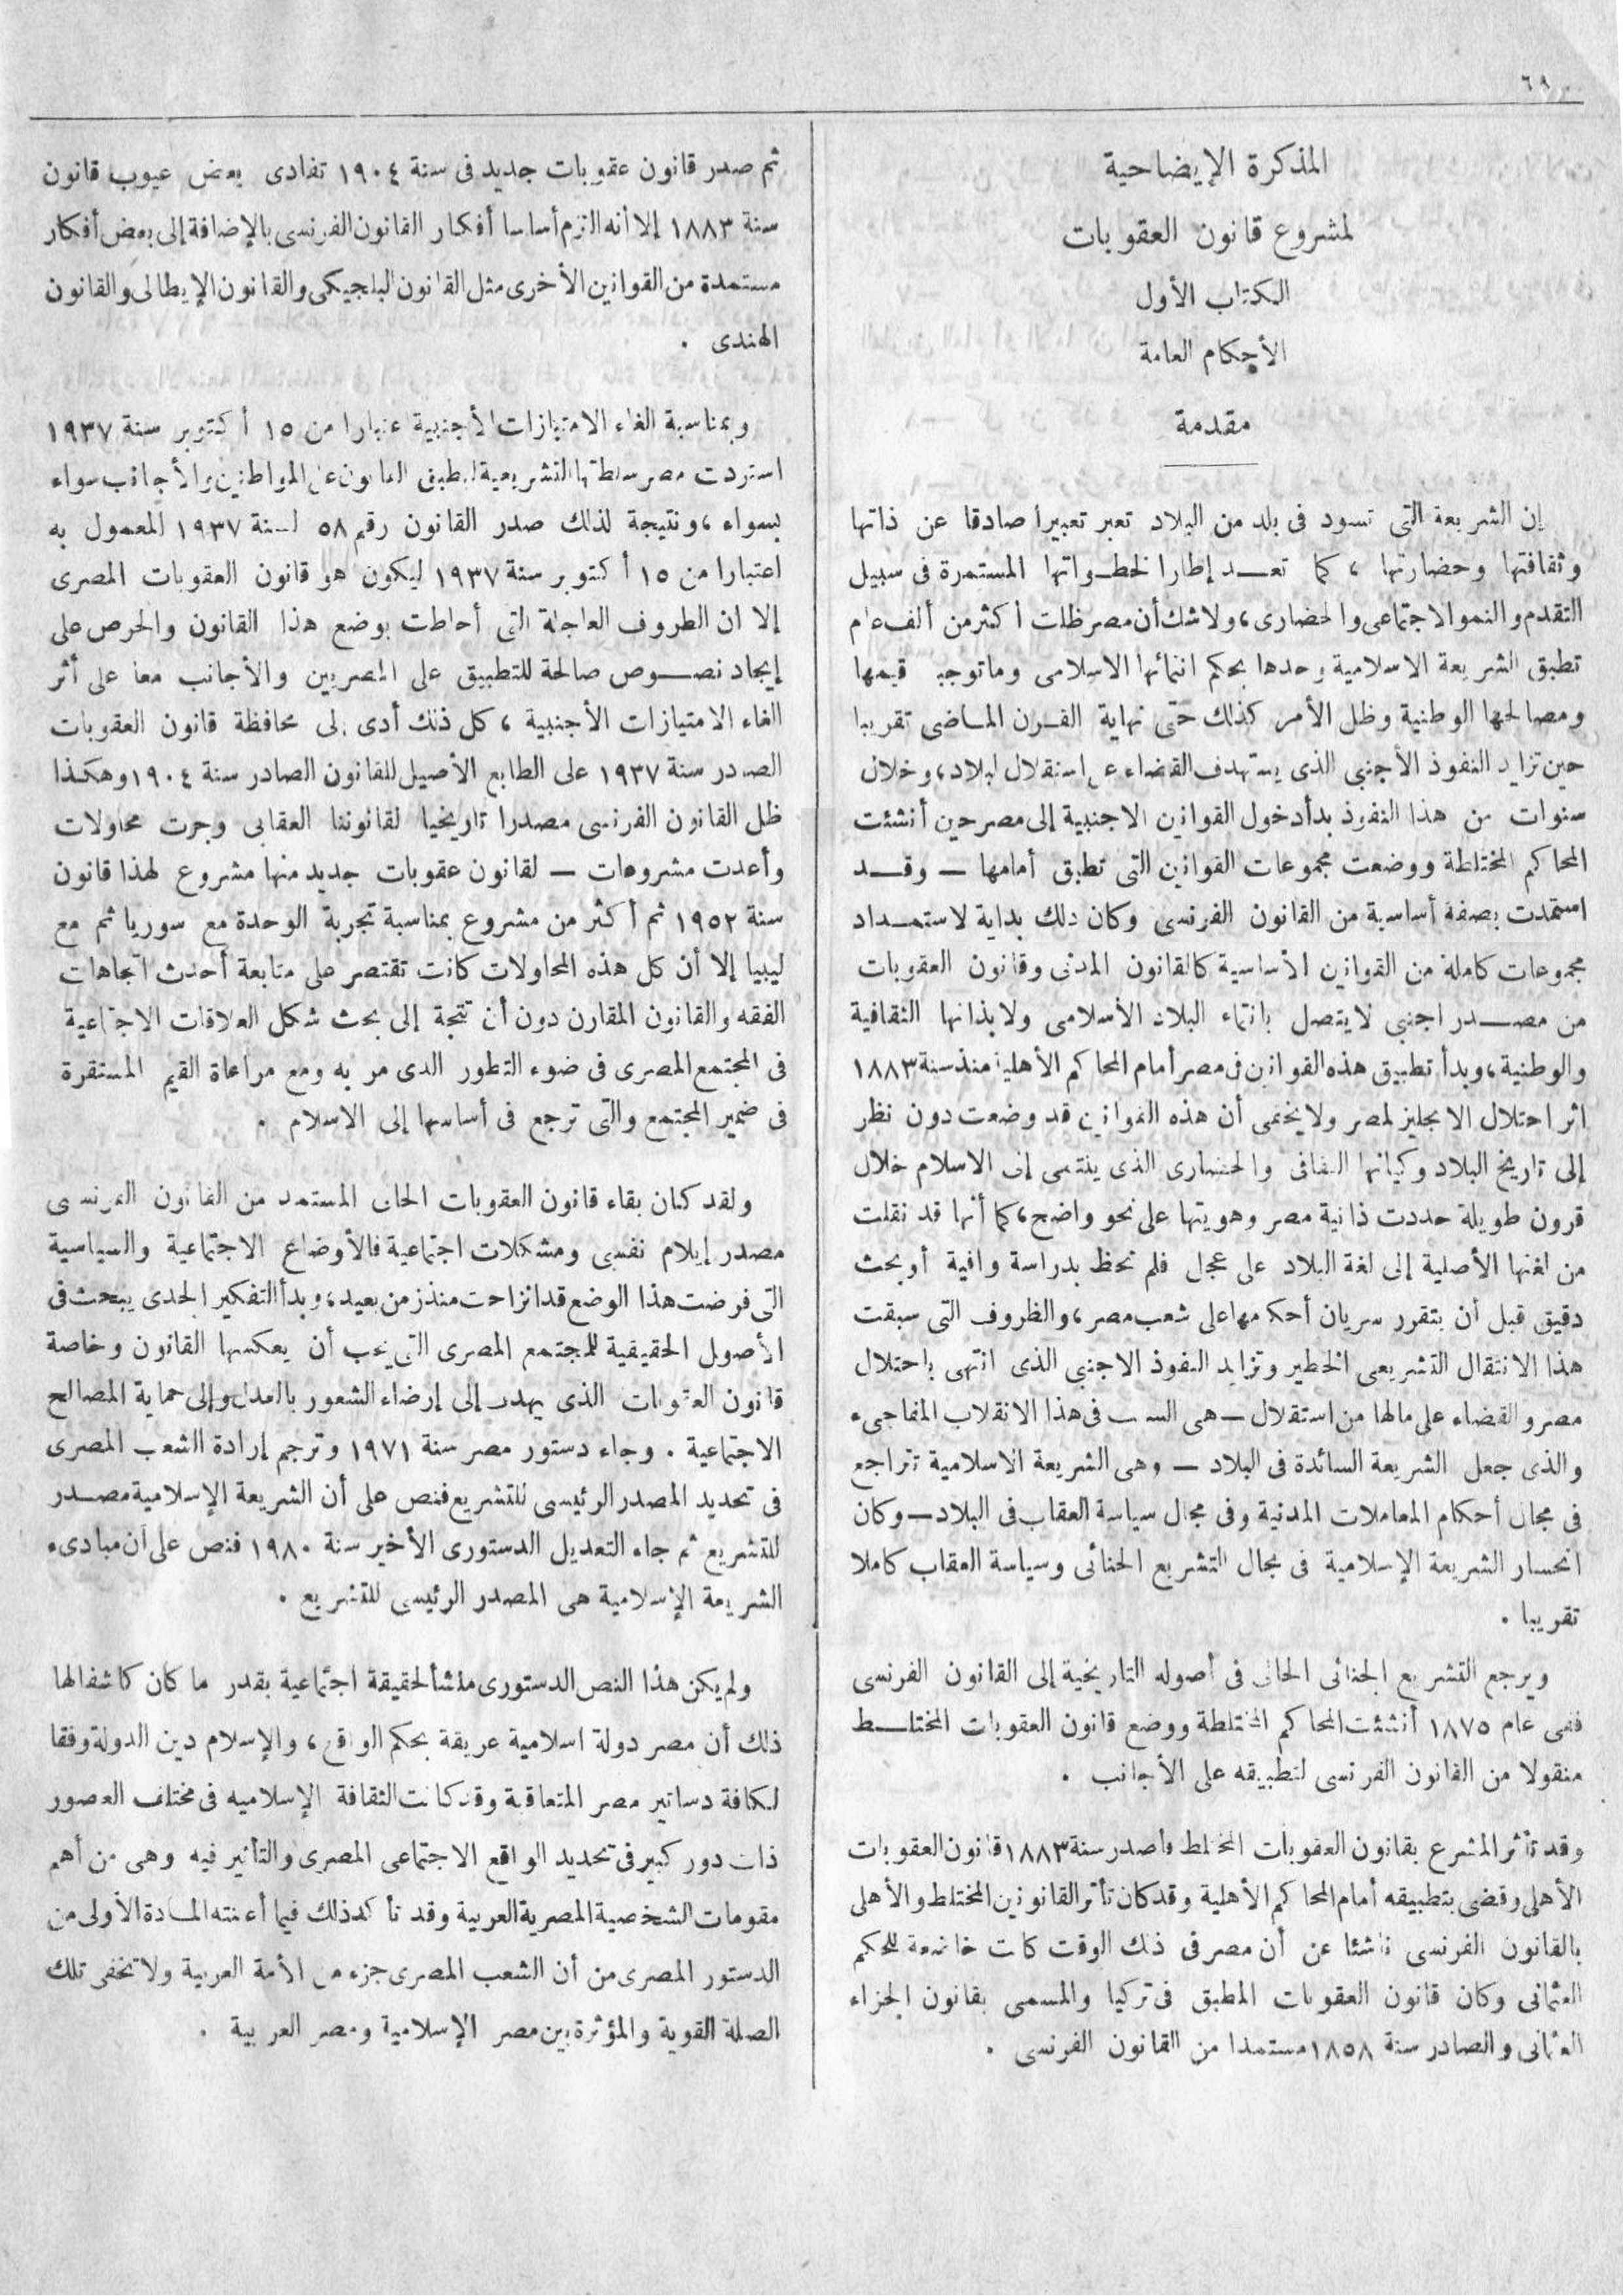 ٦٩
المذكرة الإيضاحية
لمشروع قانون العقوبات
الكتاب الأول
الأحكام العامة
مقدمة
إن الشريعة التى تسود فى بلد من البلاد تعبر تعبيرا صادقا عن ذاتها
وثقافتها وحضارتها ، كما تعـــد إطارا لخطـواتها المستمرة فى سبيل
التقدم والنمو الاجتماعى والحضارى ، ولاشك أن مصر ظلت أكثر من ألف عام
تطبق الشريعة الاسلامية وحدها بحكم انتمائها الاسلامى وماتوجبه قيمها
ومصالحها الوطنية وظل الأمر كذلك حتى نهاية القـرن المـاضى تقريبا
حين تزايد النفوذ الأجنبى الذى يستهدف القضاء على استقلال البلاد ، وخلال
سنوات من هذا النفوذ بدأ دخول القوانين الاجنبية إلى مصر حين أنشئت
المحاكم المختلطة ووضعت مجموعات القوانين التى تطبق أمامها — وقـــد
استمدت بصفة أساسية من القانون الفرنسى وكان ذلك بداية لاستمـــداد
مجموعات كاملة من القوانين الأساسية كالقانون المدنى وقانون العقوبات
من مصـــدر اجنبى لايتصل بانتماء البلاد الأسلامى ولابذاتها الثقافية
والوطنية ، وبدأ تطبيق هذه القوانين فى مصر أمام المحاكم الأهلية منذ سنة ١٨٨٣
اثر احتلال الانجليز لمصر ولايخفى أن هذه القوانين قد وضعت دون نظر
إلى تاريخ البلاد وكيانها الثقافى والحضارى الذى ينتمى إلى الاسلام خلال
قرون طويلة حددت ذاتية مصر وهويتها على نحو واضح ، كما أنها قد نقلت
من لغتها الأصلية إلى لغة البلاد على عجل فلم تحظ بدراسة وافية أوبحث
دقيق قبل أن يتقرر سريان أحكامها على شعب مصر ، والظروف التى سبقت
هذا الانتقال التشريعى الخطير وتزايد النفوذ الاجنبى الذى انتهى باحتلال
مصر والقضاء على مالها من استقلال — هى السبب فى هذا الانقلاب المفاجىء
والذى جعل الشريعة السائدة فى البلاد — وهى الشريعة الاسلامية تتراجع
فى مجال أحكام المعاملات المدنية وفى مجال سياسة العقاب فى البلاد — وكان
انحسار الشريعة الإسلامية فى مجال التشريع الجنائى وسياسة العقاب كاملا
تقريبا .
ويرجع التشريع الجنائى الحالى فى أصوله التاريخية إلى القانون الفرنسى
ففى عام ١٨٧٥ أنشئت المحاكم المختلطة ووضع قانون العقوبات المختلــط
منقولا من القانون الفرنسى لتطبيقه على الأجانب .
وقد تأثر المشرع بقانون العقوبات المختلط فأصدر سنة ١٨٨٣ قانون العقوبات
الأهلى وقضى بتطبيقه أمام المحاكم الأهلية وقد كان تأثر القانونين المختلط والأهلى
بالقانون الفرنسى ناشئا عن أن مصر فى ذلك الوقت كانت خاضعة للحكم
العثمانى وكان قانون العقوبات المطبق فى تركيا والمسمى بقانون الجزاء
العثمانى والصادر سنة ١٨٥٨ مستمدا من القانون الفرنسى .
ثم صدر قانون عقوبات جديد فى سنة ١٩٠٤ تفادى بعض عيوب قانون
سنة ١٨٨٣ إلا أنه التزم أساسا أفكار القانون الفرنسى بالإضافة إلى بعض أفكار
مستمدة من القوانين الأخرى مثل القانون البلجيكى والقانون الإيطالى والقانون
الهندى .
وبمناسبة الغاء الامتيازات الأجنبية اعتبارا من ١٥ أكتوبر سنة ١٩٣٧
استردت مصر سلطتها التشريعية لتطبق القانون على المواطنين والأجانب سواء
بسواء ، ونتيجة لذلك صدر القانون رقم ٥٨ لسنة ١٩٣٧ المعمول به
اعتبارا من ١٥ أكتوبر سنة ١٩٣٧ ليكون هو قانون العقوبات المصرى
إلا ان الظروف العاجلة التى أحاطت بوضع هذا القانون والحرص على
إيجاد نصـــوص صالحة للتطبيق على المصريين والأجانب معا على أثر
الغاء الامتيازات الأجنبية ، كل ذلك أدى إلى محافظة قانون العقوبات
الصادر سنة ١٩٣٧ على الطابع الأصيل للقانون الصادر سنة ١٩٠٤ وهكذا
ظل القانون الفرنسى مصدرا تاريخيا لقانوننا العقابى وجرت محاولات
وأعدت مشروعات — لقانون عقوبات جديد منها مشروع لهذا قانون
سنة ١٩٥٢ ثم أكثر من مشروع بمناسبة تجربة الوحدة مع سوريا ثم مع
ليبيا إلا أن كل هذه المحاولات كانت تقتصر على متابعة أحدث اتجاهات
الفقه والقانون المقارن دون أن تتجة إلى بحث شكل العلاقات الاجتماعية
فى المجتمع المصرى فى ضوء التطور الذى مر به ومع مراعاة القيم المستقرة
فى ضمير المجتمع والتى ترجع فى أساسها إلى الاسلام .
ولقد كان بقاء قانون العقوبات الحالى المستمد من القانون الفرنسى
مصدر إيلام نفسى ومشكلات اجتماعية فالأوضاع الاجتماعية والسياسية
التى فرضت هذا الوضع قد انزاحت منذ زمن بعيد ، وبدأ التفكير الجدى يبحث فى
الأصول الحقيقية للمجتمع المصرى التى يجب أن يعكسها القانون وخاصة
قانون العقوبات الذى يهدف إلى إرضاء الشعور بالعدل وإلى حماية المصالح
الاجتماعية . وجاء دستور مصر سنة ١٩٧١ وترجم إرادة الشعب المصرى
فى تحديد المصدر الرئيسى للتشريع فنص على أن الشريعة الإسلامية مصــدر
للتشريع ثم جاء التعديل الدستورى الأخير سنة ١٩٨٠ فنص على أن مبادىء
الشريعة الإسلامية هى المصدر الرئيسى للتشريع .
ولم يكن هذا النص الدستورى منشأ لحقيقة اجتماعية بقدر ما كان كاشفا لها
ذلك أن مصر دولة اسلامية عريقة بحكم الواقع ، والإسلام دين الدولة وفقا
لكافة دساتير مصر المتعاقبة وقد كانت الثقافة الإسلاميه فى مختلف العصور
ذات دور كبير فى تحديد الواقع الاجتماعى المصرى والتأثير فيه وهى من أهم
مقومات الشخصية المصرية العربية وقد تأكد ذلك فيما أعلنته المـادة الأولى من
الدستور المصرى من أن الشعب المصرى جزء من الأمة العربية ولا تخفى تلك
الصلة القوية والمؤثرة بين مصر الإسلامية ومصر العربية .